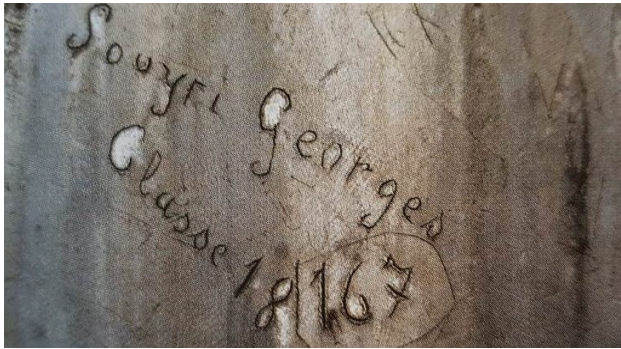 Souyri Georges
Classe 18 167